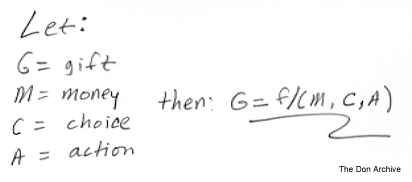 Let:
G = gift
M = money
C = choice
A = action
then: G = f/(M, C, A)
The Don Archive